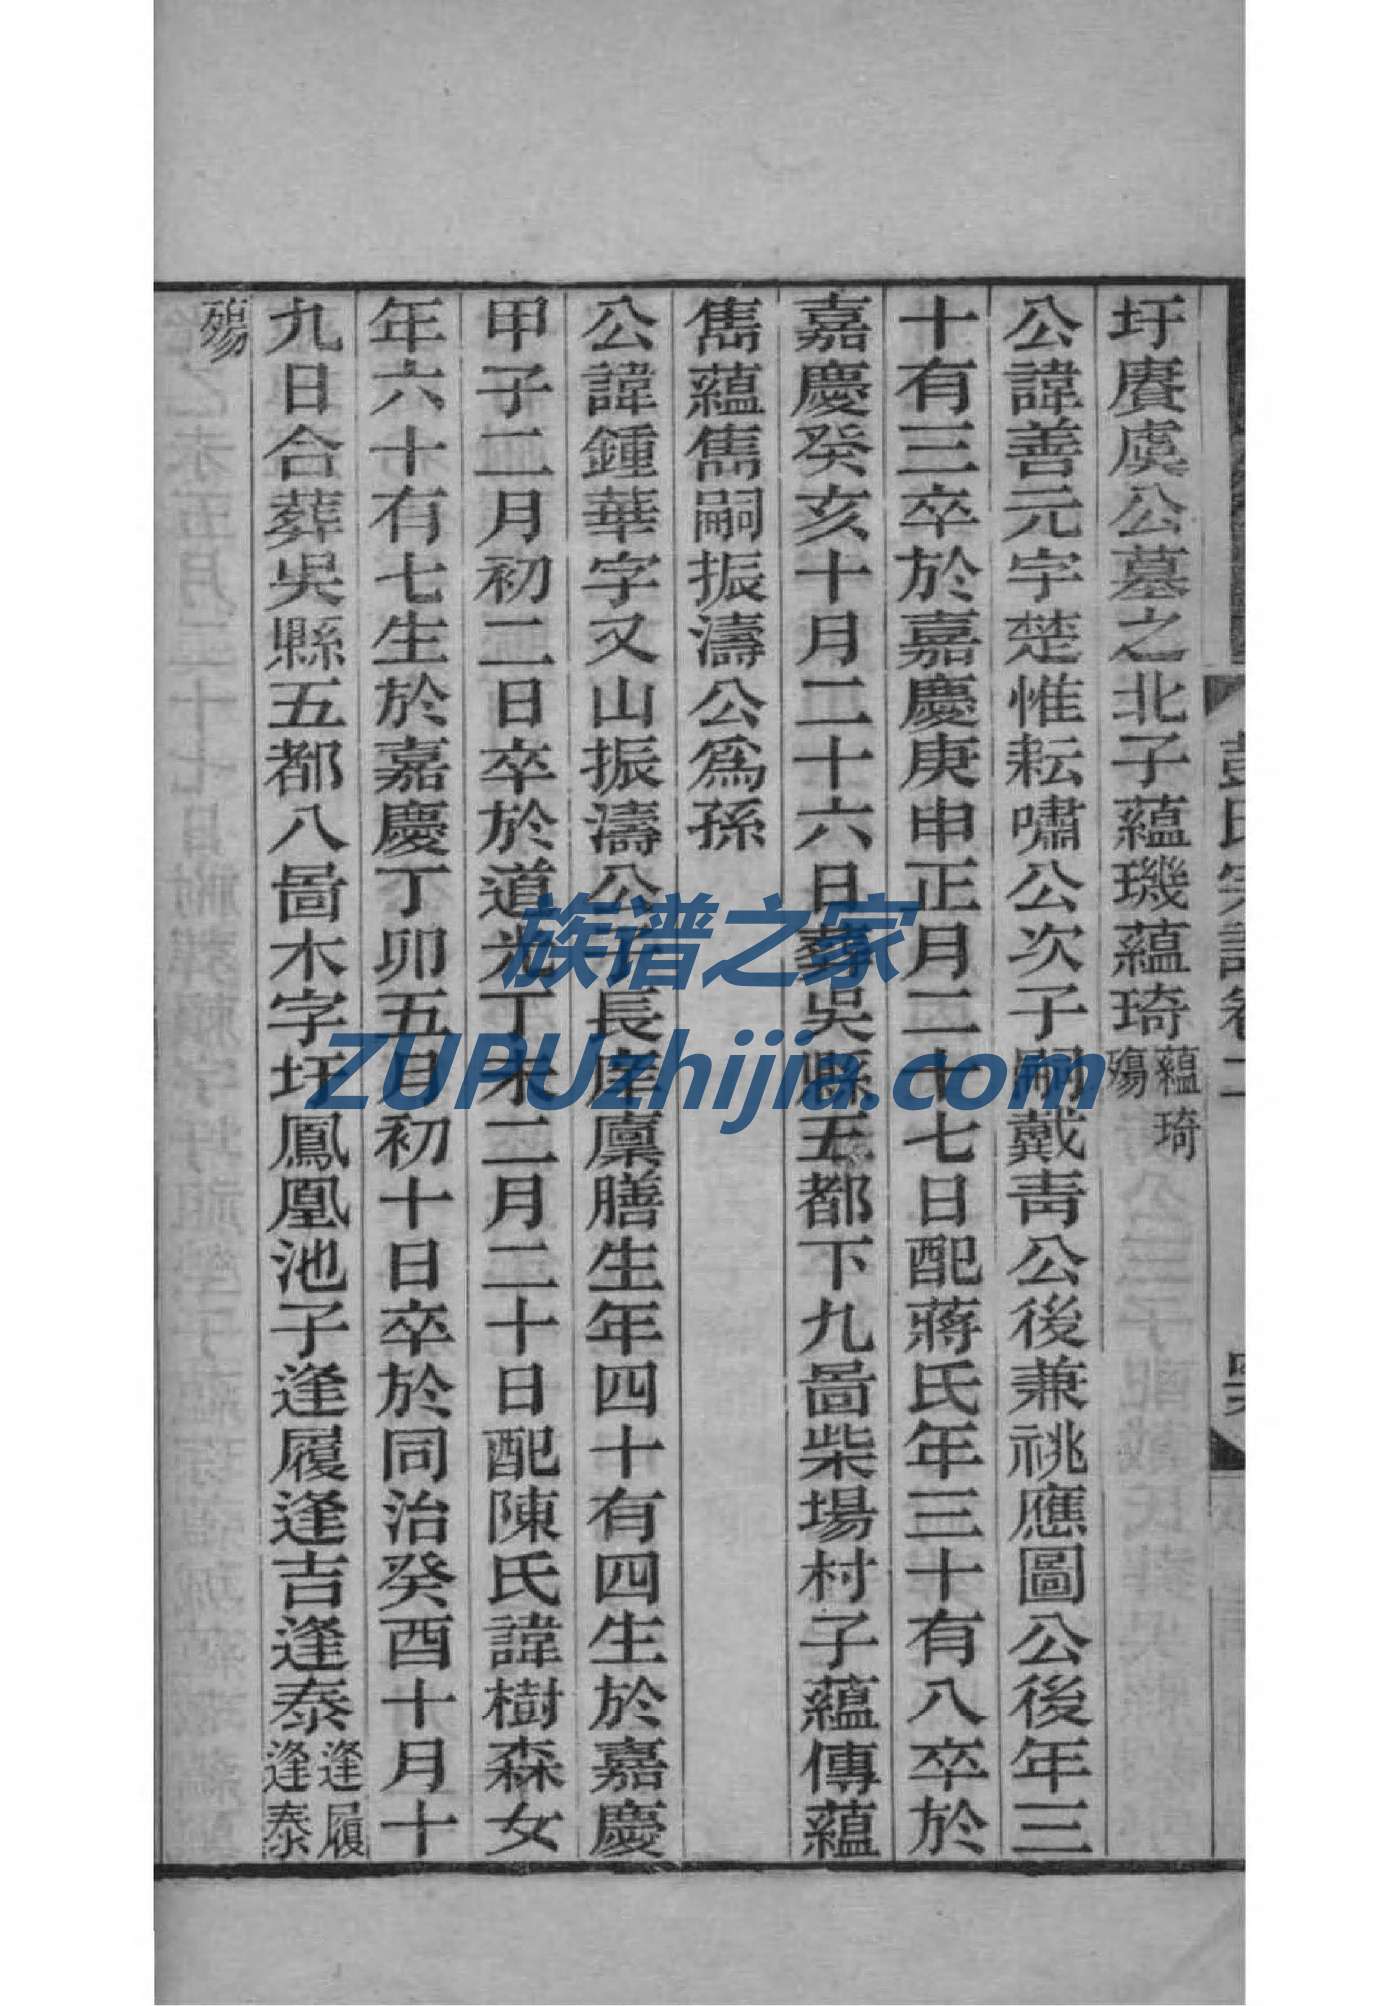 彭氏宗譜卷二
圩賡虞公墓之北子蘊璣蘊琦蘊琦殤
公諱善元字楚惟耘嘯公次子嗣戴青公後兼祧應圖公後年三
十有三卒於嘉慶庚申正月二十七日配蔣氏年三十有八卒於
嘉慶癸亥十月二十六日葬吳縣五都下九啚柴場村子蘊傳蘊
雋蘊雋嗣振濤公爲孫
公諱鍾華字又山振濤公子長庠廩膳生年四十有四生於嘉慶
甲子二月初二日卒於道光丁未二月二十日配陳氏諱樹森女
年六十有七生於嘉慶丁卯五月初十日卒於同治癸酉十月十
九日合葬吳縣五都八啚木字圩鳳凰池子逢履逢吉逢泰逢履逢泰
殤
族谱之家
ZUPUzhijia.com